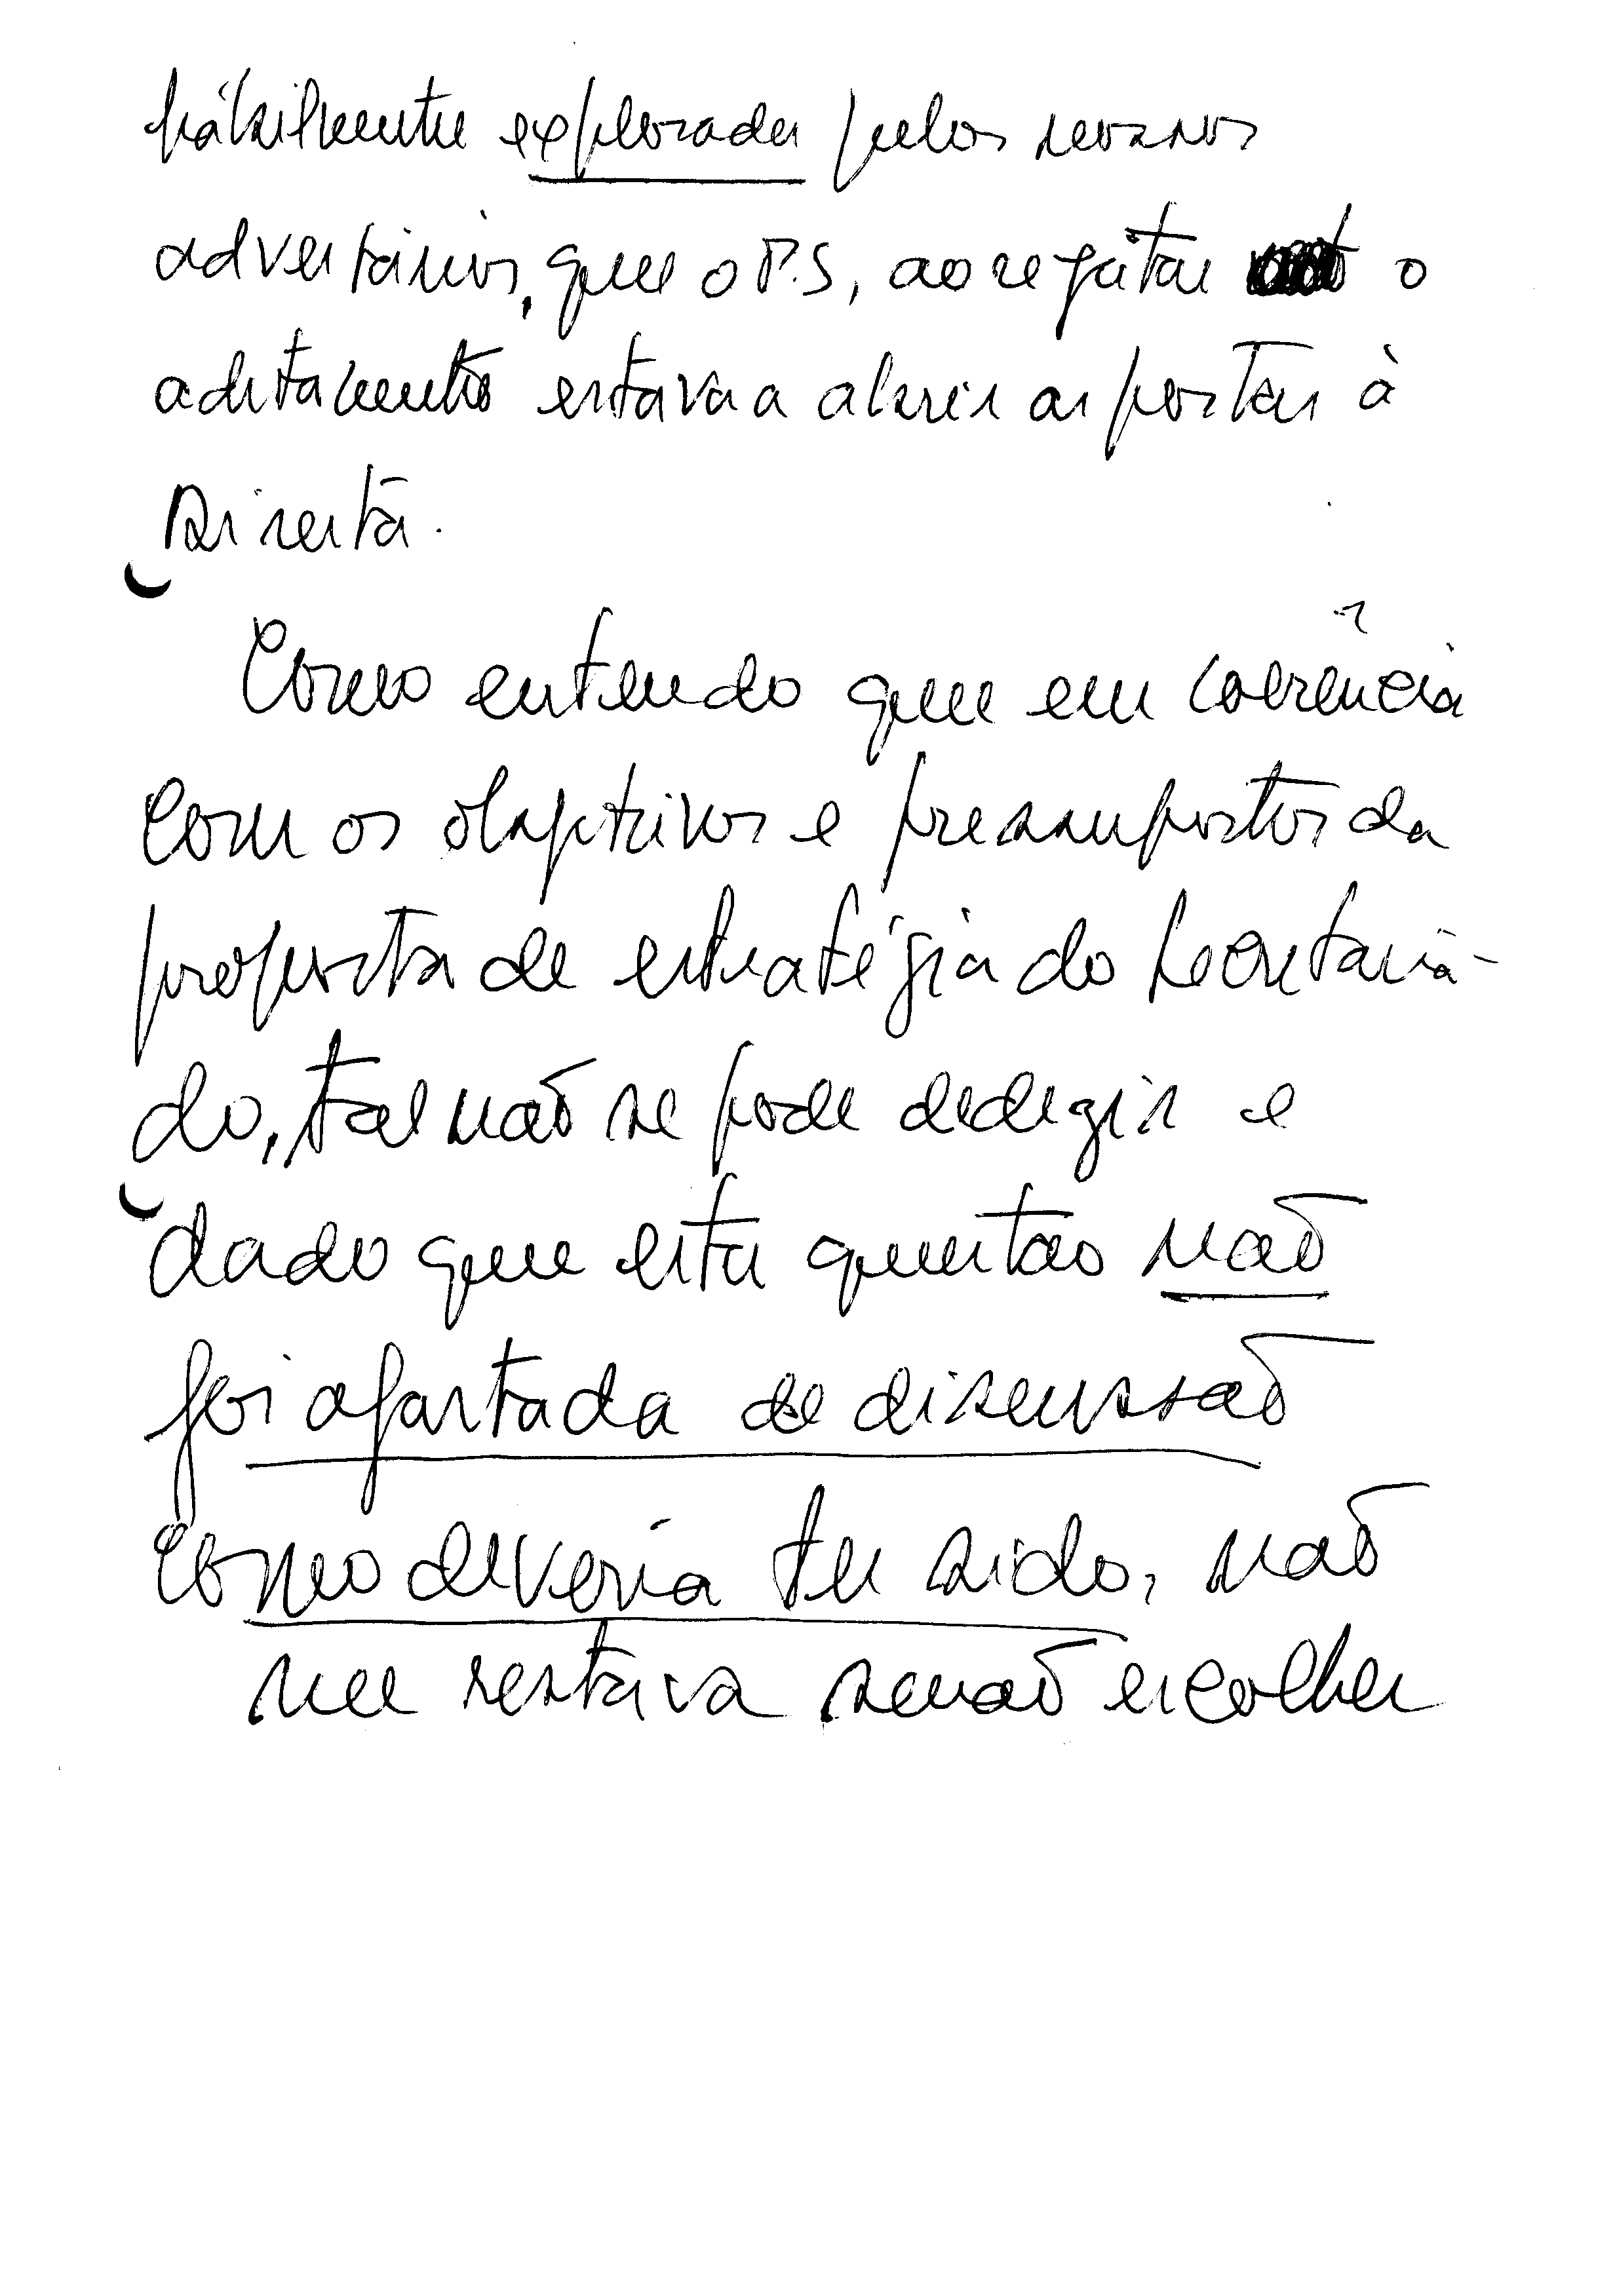 hábilmente explorada pelos nossos
adversários, que o P.S, ao rejeitar o
aditamento estava a abrir as portas à
Direita.
Como entendo que em coerência
com os objectivos e pressupostos da
proposta de estratégia do Secretaria-
do, tal não se pode dedegir e
dado que esta questao não
foi afastada de discussão
como deveria ter sido, não
me restava senão escolher